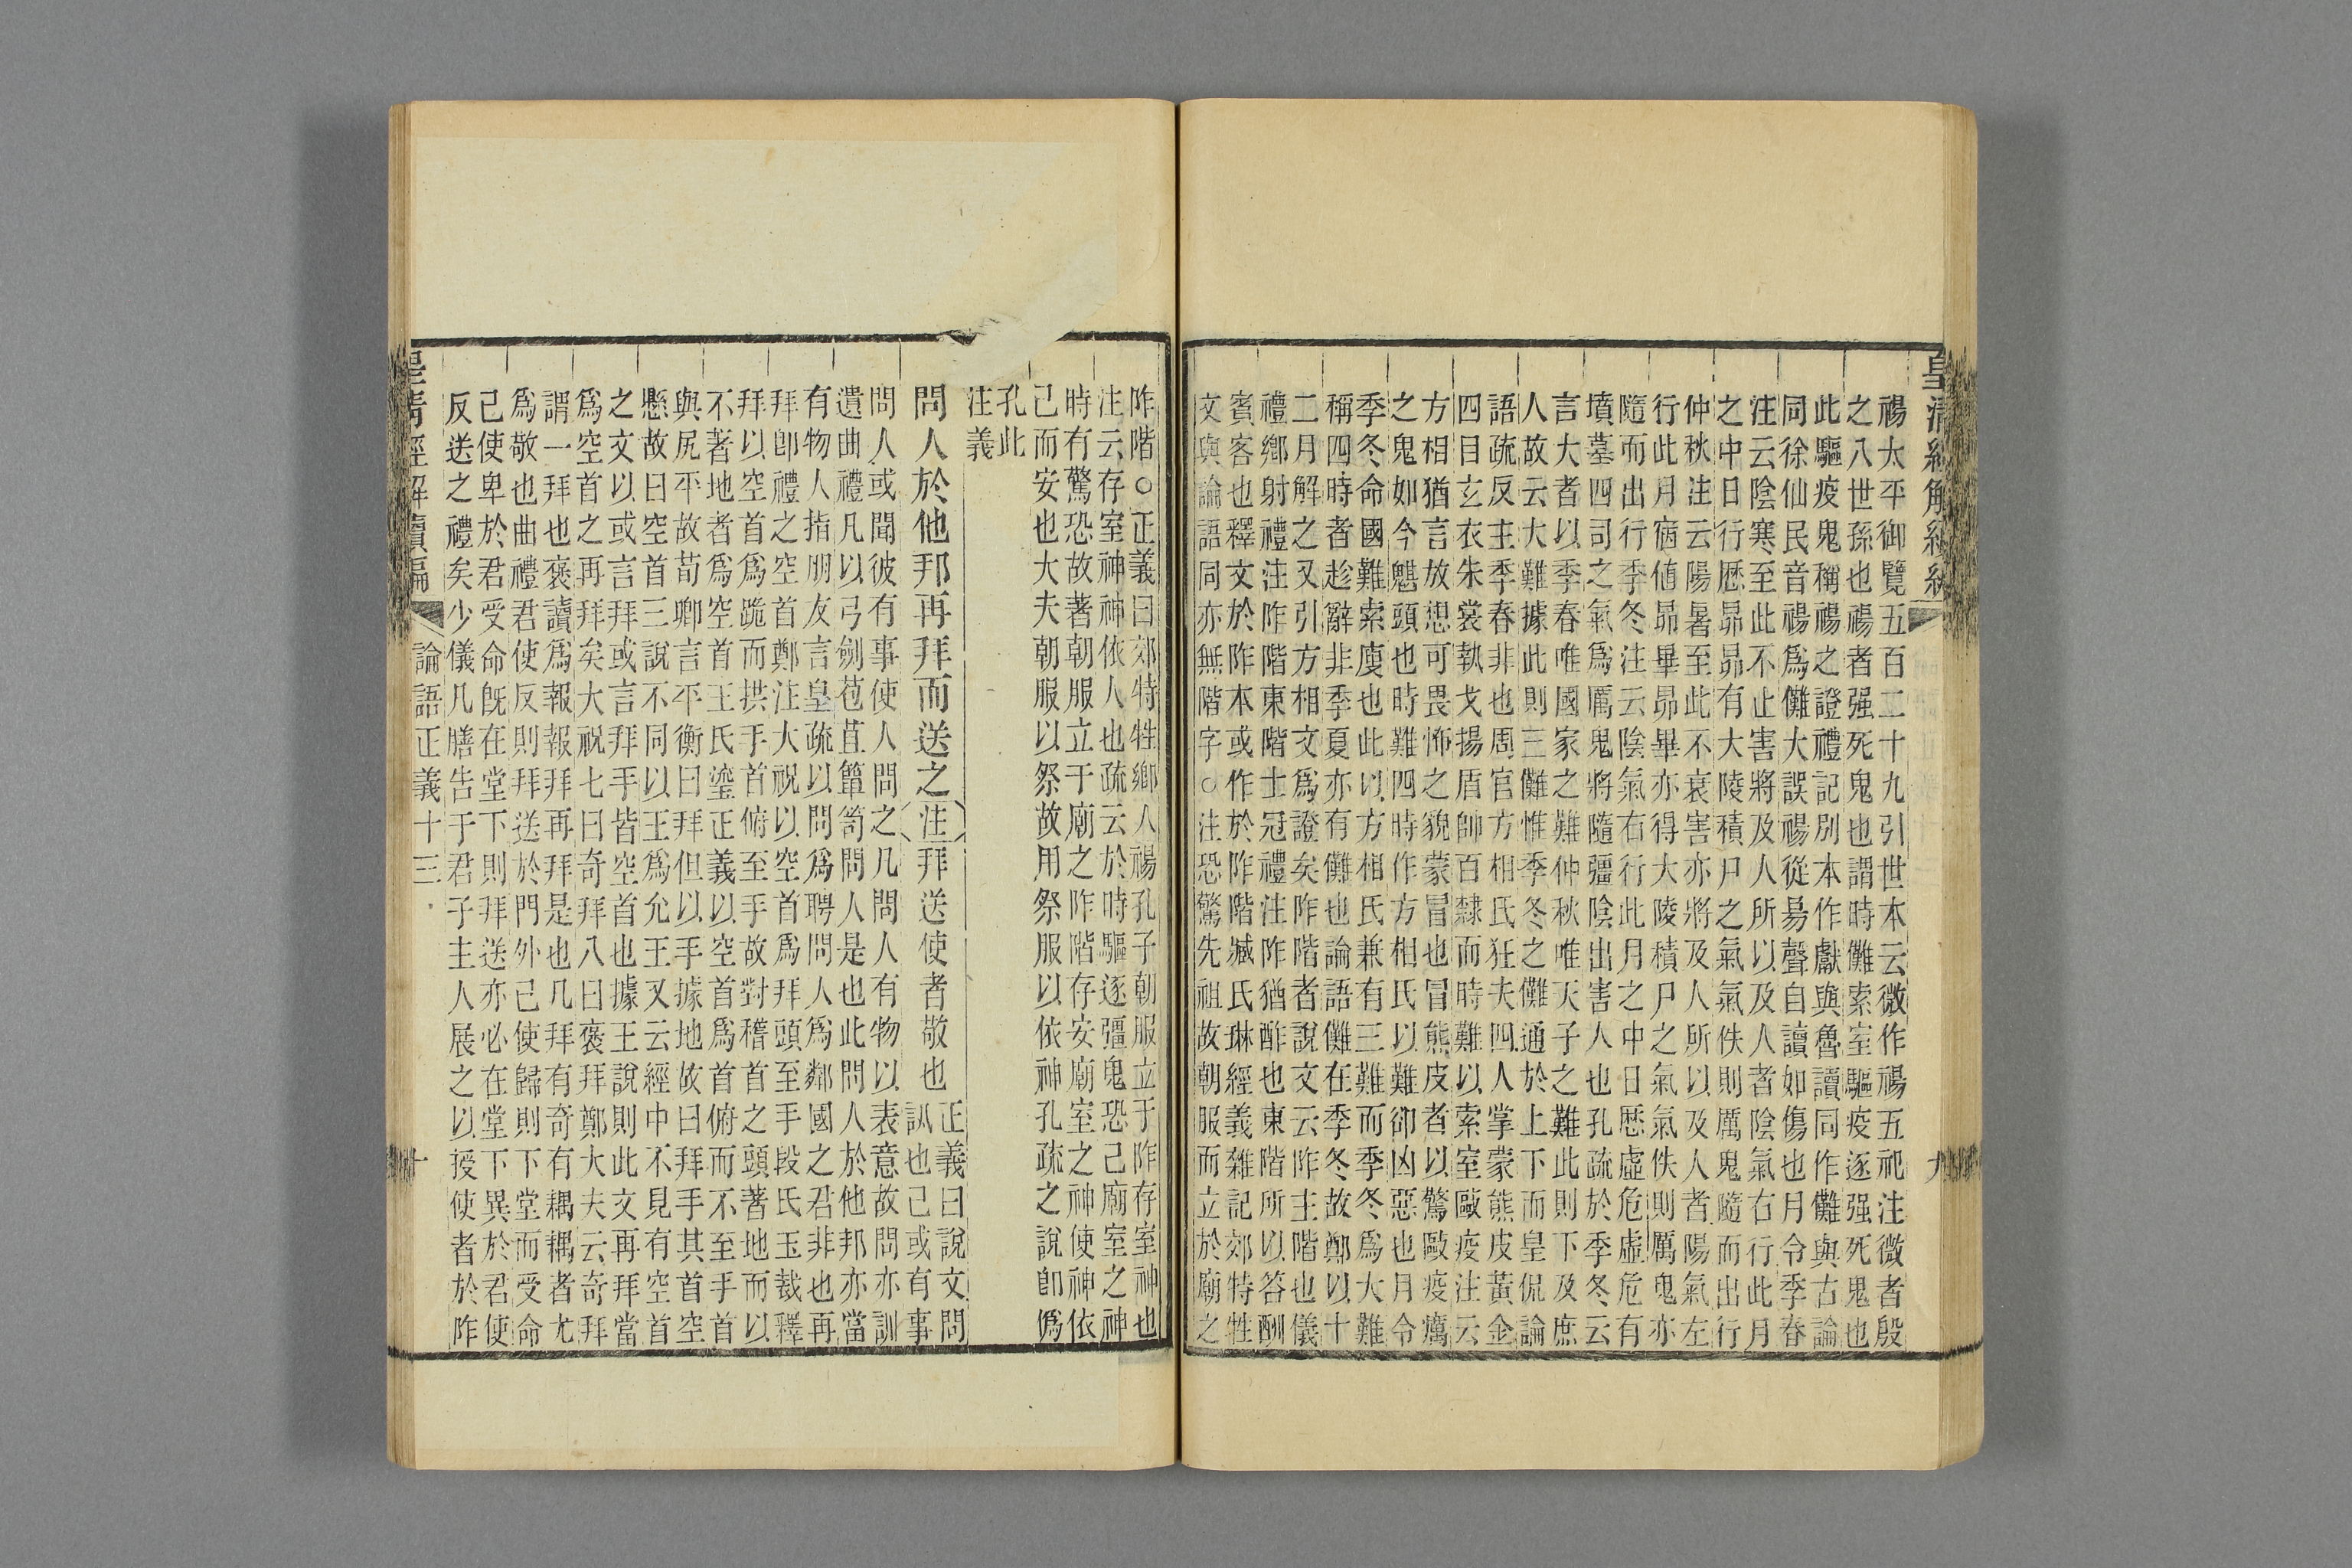 皇清經解續編
九
禓太平御覽五百二十九引世本云微作禓五祀注微者殷
之八世孫也禓者强死鬼也謂時儺索室驅疫逐强死鬼也
此驅疫鬼稱禓之證禮記別本作獻與魯讀同作儺與古論
同徐仙民音禓爲儺大誤禓從昜聲自讀如傷也月令季春
注云陰寒至此不止害將及人所以及人者陰氣右行此月
之中日行歷昴昴有大陵積尸之氣氣佚則厲鬼隨而出行
仲秋注云陽暑至此不衰害亦將及人所以及人者陽氣左
行此月宿値昴畢昴畢亦得大陵積尸之氣氣佚則厲鬼亦
隨而出行季冬注云陰氣右行此月之中日歷虛危虛危有
墳墓四司之氣爲厲鬼將隨疆陰出害人也孔疏於季冬云
言大者以季春唯國家之難仲秋唯天子之難此則下及庶
人故云大難據此則三儺惟季冬之儺通於上下而皇侃論
語疏反主季春非也周官方相氏狂夫四人掌蒙熊皮黃金
四目玄衣朱裳執戈揚盾帥百隸而時難以索室毆疫注云
方相猶言放想可畏怖之貌蒙冒也冒熊皮者以驚毆疫癘
之鬼如今魌頭也時難四時作方相氏以難卻凶惡也月令
季冬命國難索廋也此以方相氏兼有三難而季冬爲大難
稱四時者趁辭非季夏亦有儺也論語儺在季冬故鄭以十
二月解之又引方相文爲證矣阼階者說文云阼主階也儀
禮鄉射禮注阼階東階士冠禮注阼猶酢也東階所以答酬
賓客也釋文於阼本或作於阼階臧氏琳經義雜記郊特牲
文與論語同亦無階字○注恐驚先祖故朝服而立於廟之
阼階○正義曰郊特牲鄉人禓孔子朝服立于阼存室神也
注云存室神神依人也疏云於時驅逐彊鬼恐己廟室之神
時有驚恐故著朝服立于廟之阼階存安廟室之神使神依
己而安也大夫朝服以祭故用祭服以依神孔疏之說卽僞
孔此
注義
問人於他邦再拜而送之注拜送使者敬也
正義曰說文問
訊也己或有事
問人或聞彼有事使人問之凡問人有物以表意故問亦訓
遺曲禮凡以弓劍苞苴簞笥問人是也此問人於他邦亦當
有物人指朋友言皇疏以問爲聘問人爲鄰國之君非也再
拜卽禮之空首鄭注大祝以空首爲拜頭至手段氏玉裁釋
拜以空首爲跪而拱手首俯至手故對稽首之頭著地而以
不著地者爲空首王氏瑬正義以空首爲首俯而不至手首
與尻平故荀卿言平衡曰拜但以手據地故曰拜手其首空
懸故曰空首三說不同以王爲允王又云經中不見有空首
之文以或言拜或言拜手皆空首也據王說則此文再拜當
爲空首之再拜矣大祝七曰奇拜八曰褒拜鄭大夫云奇拜
謂一拜也褒讀爲報報拜再拜是也凡拜有奇有耦耦者尤
爲敬也曲禮君使反則拜送於門外己使歸則下堂而受命
己使卑於君受命旣在堂下則拜送亦必在堂下異於君使
反送之禮矣少儀凡膳告于君子主人展之以授使者於阼
皇淸經解續編
論語正義十三
十